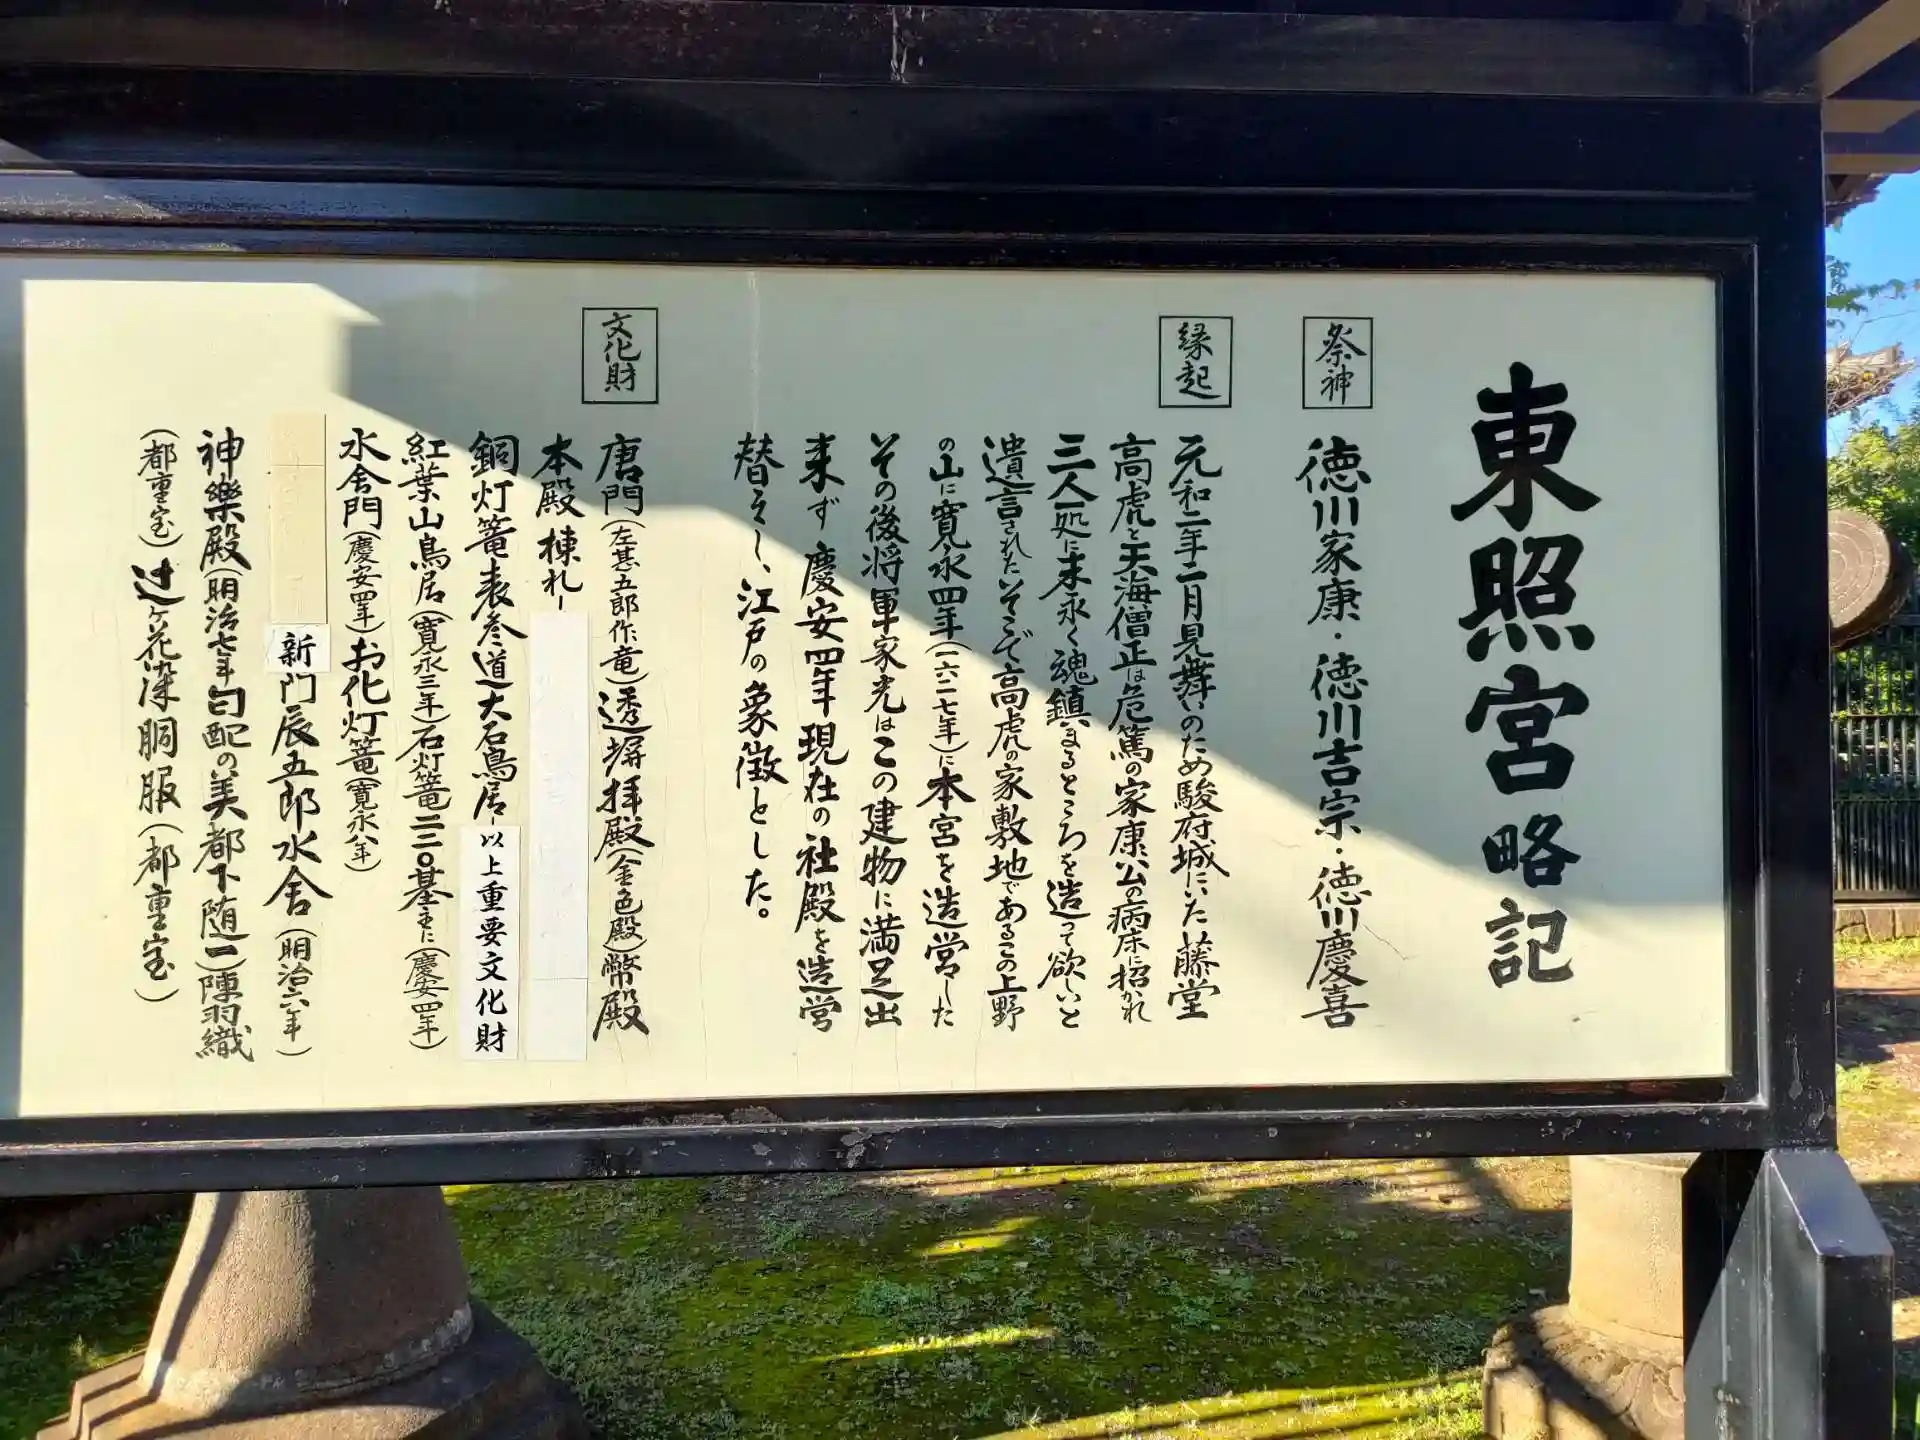 東照宮略記
祭神
徳川家康・徳川吉宗・徳川慶喜
縁起
元和二年二月見舞いのため駿府城にいた藤堂
高虎と天海僧正は危篤の家康公の病床に招かれ
三人一処に末永く魂鎮まるところを造って欲しいと
遺言されたそこで高虎の家敷地であるこの上野
の山に寛永四年(一六二七年)に本宮を造営した
その後将軍家光はこの建物に満足出
来ず慶安四年現在の社殿を造営
替えし、江戸の象徴とした。
文化財
唐門(左甚五郎作竜)透塀拝殿(金色殿)幣殿
本殿棟札
銅灯篭表参道大石鳥居 以上重要文化財
紅葉山鳥居(寛永三年)石灯篭二二〇基主に(慶安四年)
水舎門(慶安四年)お化灯篭(寛永八年)
新門辰五郎水舎(明治六年)
神樂殿(明治七年勾配の美都下随一)陣羽織
(都重宝)辻ヶ花染胴服(都重宝)